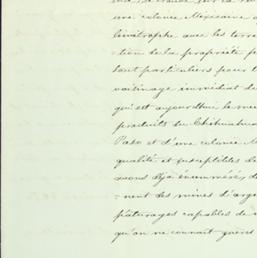 une colonie Mexicaine
limitrophe avec les terre
-tion de la propriété
tant particuliers pour
voisinage immédiat de
qu'est aujourd'hui le
produits du Chihuahua
Paso et d'une colonie M
qualité et susceptibles de
avons déja énumérés, de
-nent des mines d'arge
pâturages capables de
qu'on ne connait guères